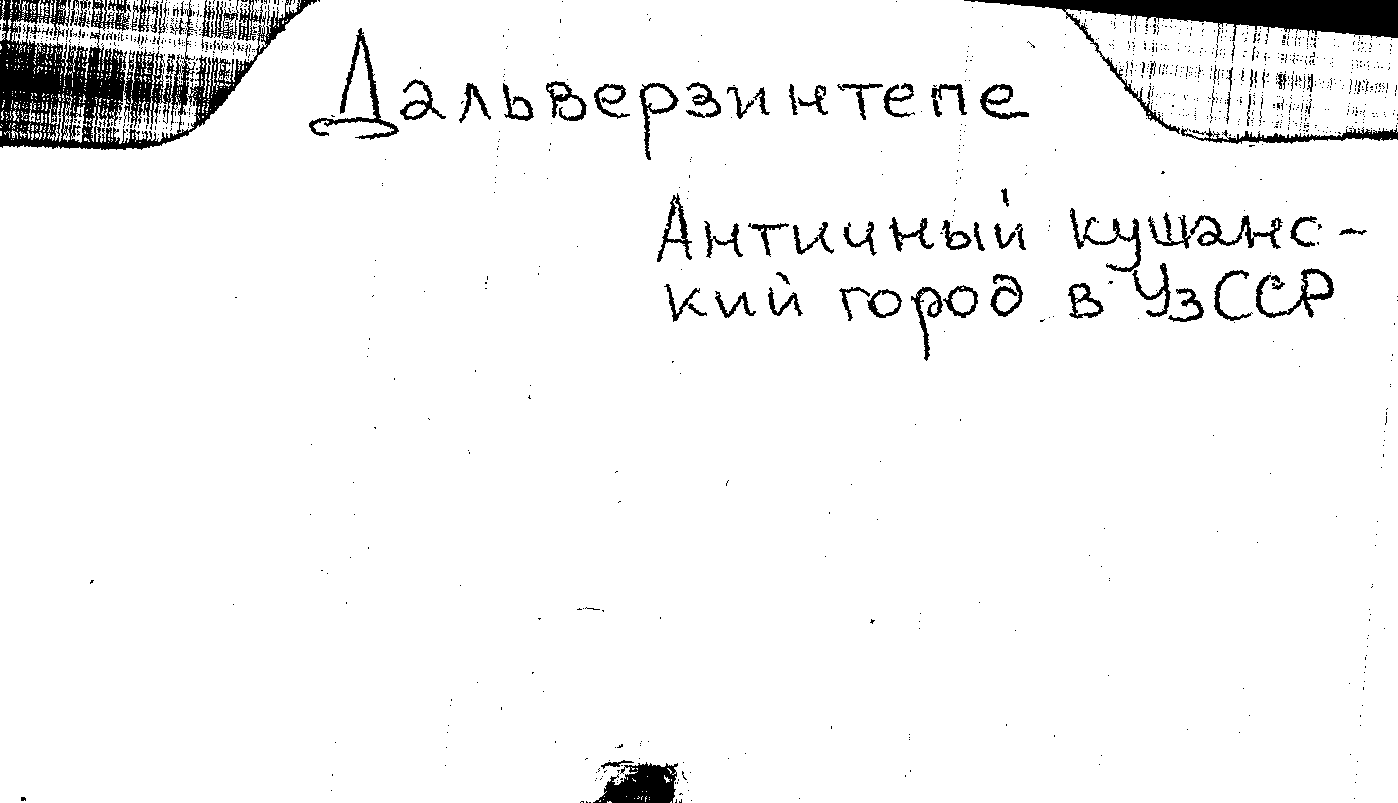 Дальверзинтепе
Античный кушанс-
кий город в УзССР